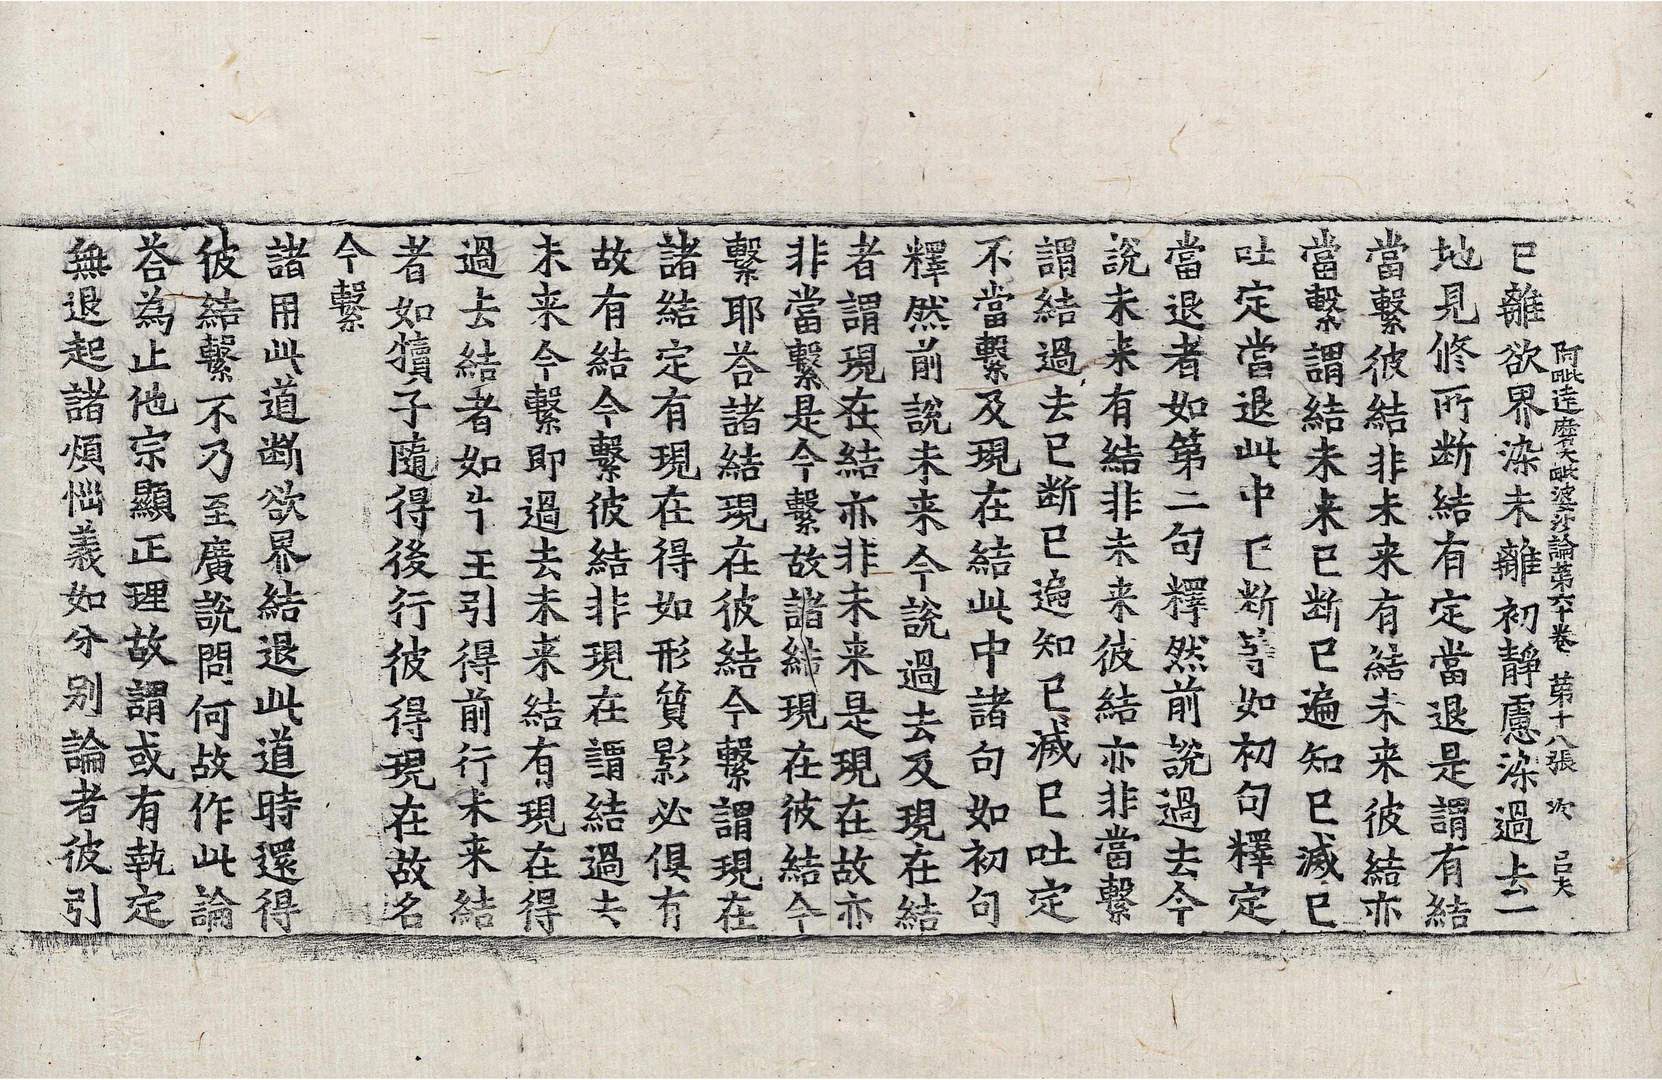 阿毗達磨大毗婆沙論第六十卷 第十八張 次 呂夫
已離欲界染未離初靜慮染過去二
地見修所断結有定當退是謂有結
當繫彼結非未来有結未来彼結亦
當繫謂結未来已断已遍知已滅已
吐定當退此中已断等如初句釋定
當退者如第二句釋然前說過去今
說未来有結非未来彼結亦非當繫
謂結過去已断已遍知已滅已吐定
不當繫及現在結此中諸句如初句
釋然前說未来今說過去及現在結
者謂現在結亦非未来是現在故亦
非當繫是今繫故諸結現在彼結今
繫耶荅諸結現在彼結今繫謂現在
諸結定有現在得如形質影必俱有
故有結今繫彼結非現在謂結過去
未来今繫即過去未来結有現在得
過去結者如牛王引得前行未来結
者如犢子隨得後行彼得現在故名
今繫
諸用此道断欲界結退此道時還得
彼結繫不乃至廣說問何故作此論
荅為止他宗顯正理故謂或有執定
無退起諸煩惱義如分别論者彼引